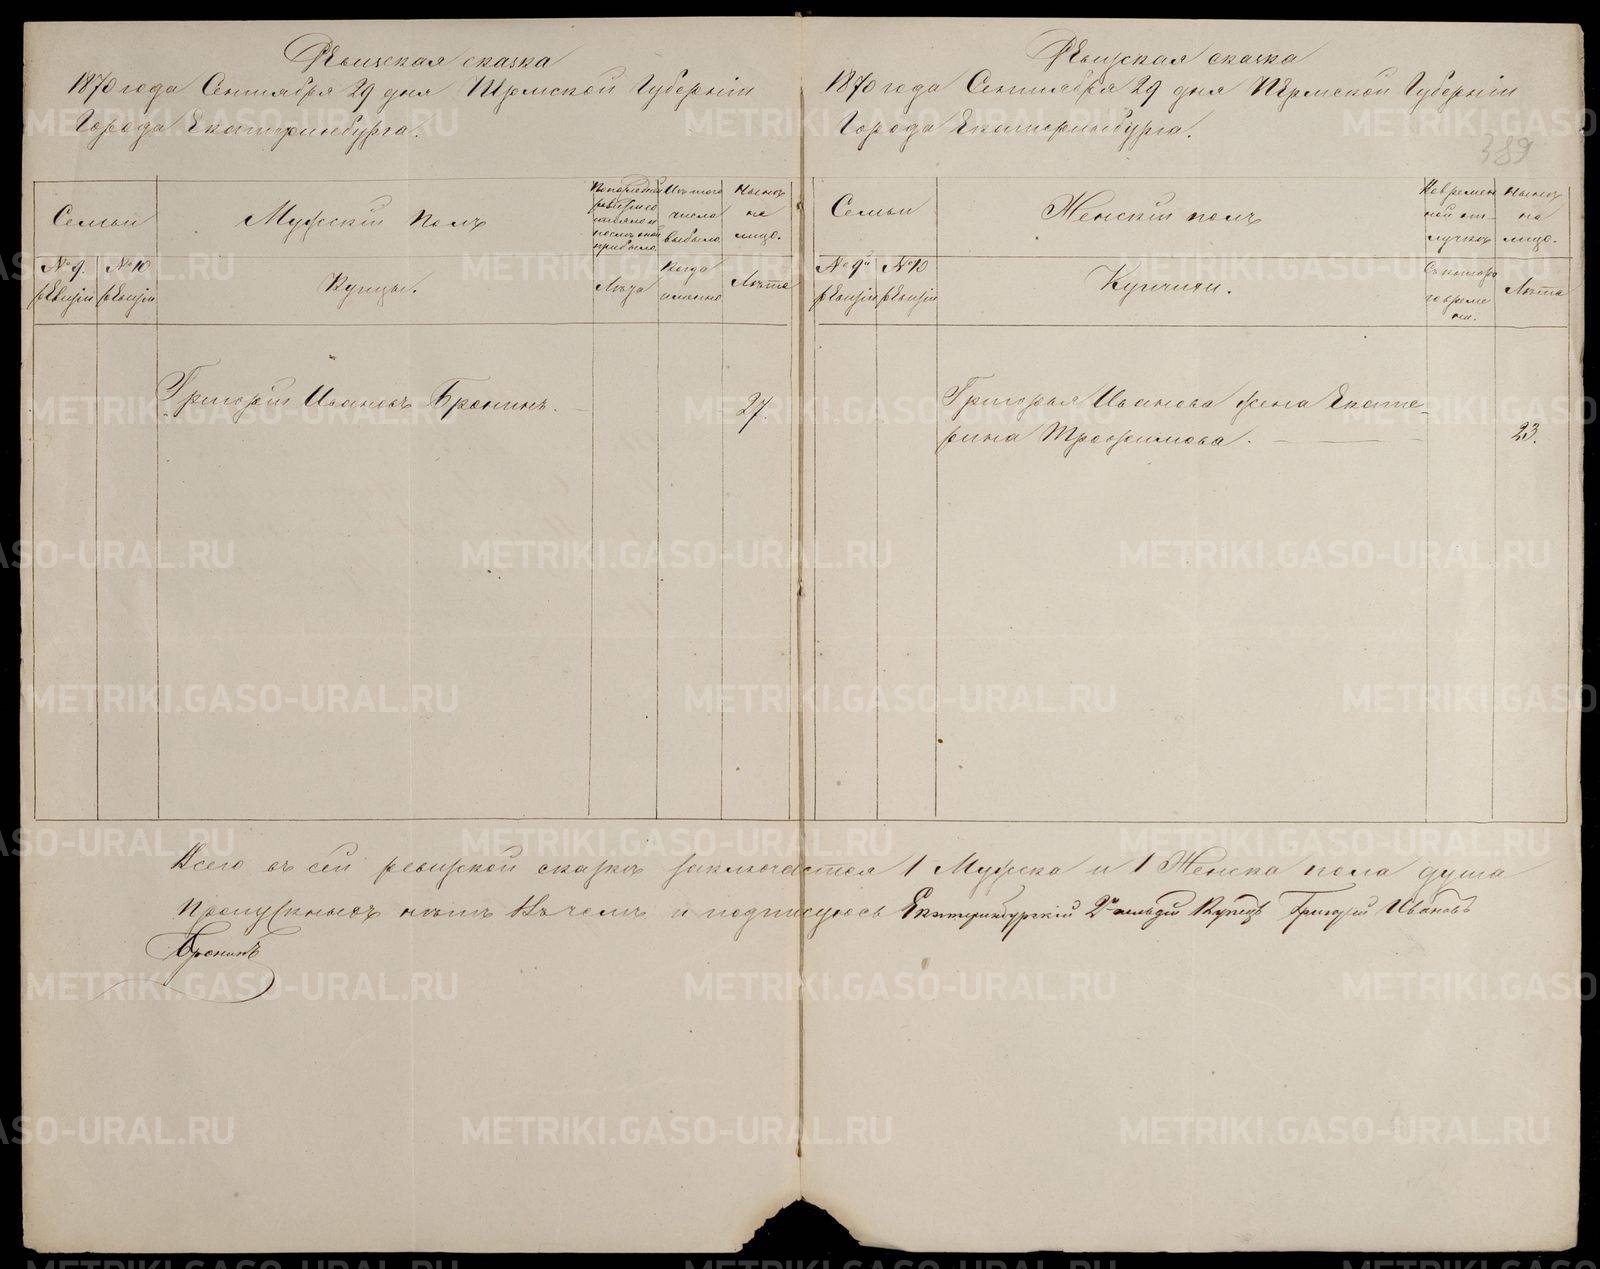 Ревизская сказка
1870 года Сентября 29 дня Пермской Губерніи
Города Екатеринбурга.
Семьи
Мужскій полъ
По последней ревизіи состояло и после оной прибыло.
Изъ того числа выбыло
Ныне на лицо.
№ 9. ревизіи
№ 10 ревизіи
Купцы.
Лета
Когда именно
Лета
Григорій Ивановъ Бронинъ.
27.
Ревизская сказка
1870 года Сентября 29 дня Пермской Губерніи
Города Екатеринбурга.
389
Семьи
Женскій полъ
Во временной отлучке
Ныне на лицо.
№ 9й ревизіи
№ 10 ревизіи
Купчихи.
Съ котораго времени.
Лета
Григорья Иванова жена Екате-
рина Трофимова.
23.
Всего въ сей ревизской сказке заключается 1 Мужска и 1 Женска пола душа
Пропускныхъ нетъ въ чемъ и подписуюсь Екатеринбургскій 2й гильдіи Купецъ Григорій Ивановъ
Бронинъ
METRIKI.GASO-URAL.RU